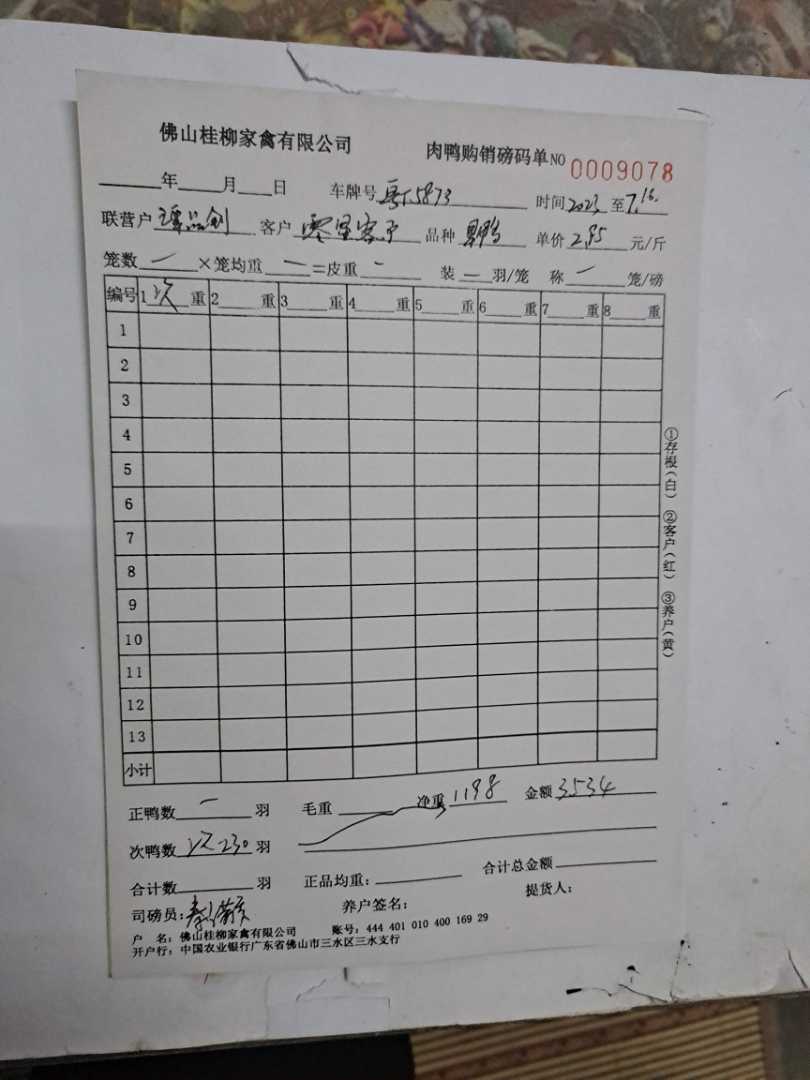 佛山桂柳家禽有限公司 肉鸭购销磅码单NO 0009078
年 月 日 车牌号 5873 时间 2023 至 7.16.
联营户 谭品剑 客户 零星客户 品种 单价 2.95 元/斤
笼数 一 ×笼均重 一 =皮重 - 装 一 羽/笼 称 一 笼/磅
编号 1 次 重 2 重 3 重 4 重 5 重 6 重 7 重 8 重
1
2
3
4
5
6
7
8
9
10
11
12
13
小计
①存根(白) ②客户(红) ③养户(黄)
正鸭数 一 羽 毛重 净重 1198 金额 3534
次鸭数 次230 羽
合计数 羽 正品均重: 合计总金额
司磅员: 养户签名: 提货人:
户 名: 佛山桂柳家禽有限公司 账号: 444 401 010 400 169 29
开户行: 中国农业银行广东省佛山市三水区三水支行